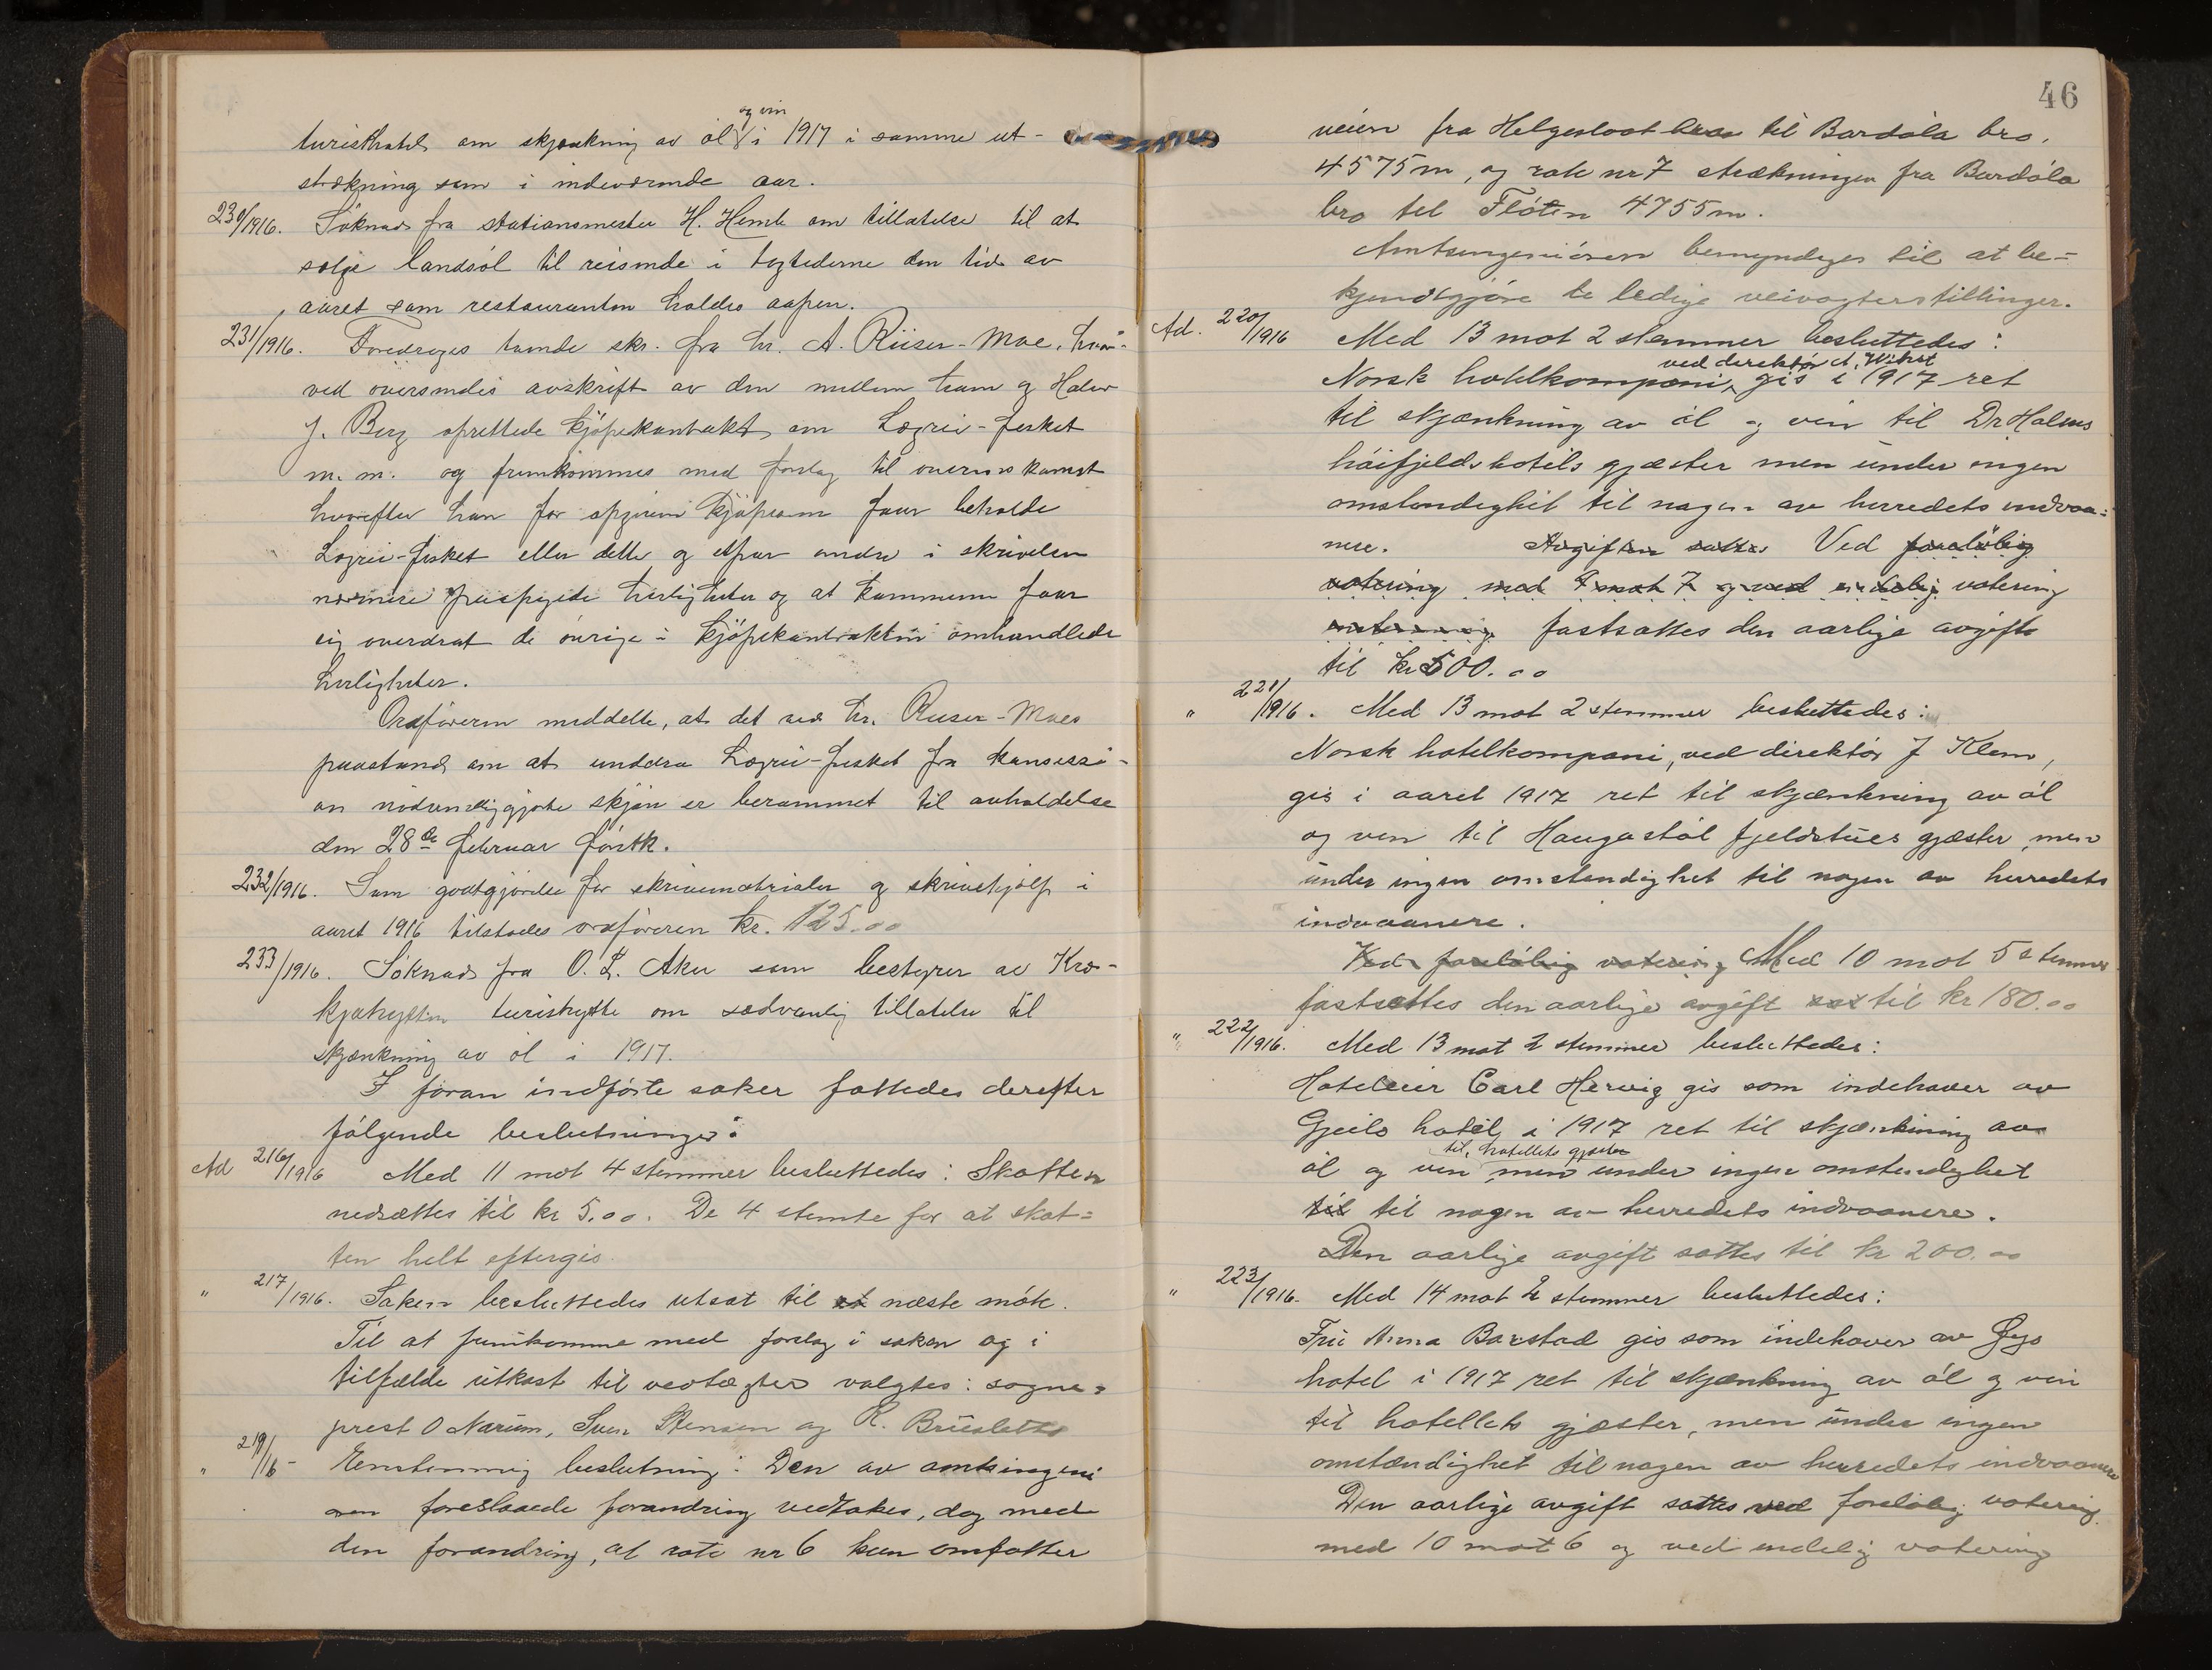 turisthotel om skjænkning av öl og vin i 1917 i samme ut-
strækning som i indeværende aar.
230/1916. Söknad fra stationsmester H. Hemb om tillatelse til at
sælge landsöl til reisende i togtiderne den tid av
aaret som restauranten holdes aapen.
231/1916. Foredroges skr. fra hr. A. Riiser-Moe, hvor-
ved oversendes avskrift av den mellem ham og Halvor
J. Berg oprettede kjöpekontrakt om Lægrei-fisket
m. m. og fremkommes med forslag til overenskomst
hvorefter han for opgiven kjöpesum faar beholde
Lægrei-fisket eller dette og etpar andre i skrivelsen
nærmere herligheter og at kommunen faar
sig overdrat de övrige i kjöpekontrakten omhandlede
herligheter.
Ordföreren meddelte, at det ved hr. Riiser-Moes
paastand om at unddra Lægrei-fisket fra konsessi-
on nödvendiggjorte skjön er berammet til avholdelse
den 28de februar förstk.
232/1916. Som godtgjörelse for skrivematrialer og skrivehjælp i
aaret 1916 tilstodes ordföreren kr. 125.00
233/1916. Söknad fra O. L. Aker som bestyrer av Kræ-
kjahytten turisthytte om sedvanlig tillatelse til
skjænkning av öl i 1917.
I foran indförte saker fattedes derefter
fölgende beslutninger:
Ad 216/1916 Med 11 mot 4 stemmer besluttedes: Skatten
nedsættes til kr 5.00. De 4 stemte for at skat=
ten helt eftergis.
" 217/1916. Saken besluttedes utsat til et næste möte.
Til at fremkomme med forslag i saken og i
tilfælde utkast til vedtægter valgtes: sogne=
prest O Narum, Sven Stensen og K. Bruslette
" 219/16- Enstemmig beslutning: Den av amtsingeni
ören foreslaaede forandring vedtakes, dog med
den forandring, at rote nr 6 kun omfatter
46
veien fra Helgesloat bro til Bardöla bro.
4575 m, og rote nr 7 strækningen fra Bardöla
bro til Flöten 4755 m.
Amtsingeniören bemyndiges til at be=
kjendtgjöre de ledige veivogterstillinger.
Ad. 220/1916 Med 13 mot 2 stemmer besluttedes:
Norsk hotelkompani, ved direktör A. gis i 1917 ret
til skjænkning av öl og vin til Dr Holms
höifjeldshotels gjæster men under ingen
omstændighet til nogen av herredets indvaa=
nere. Avgiften sættes Ved foreløbig
votering med 8 mot 7 og ved endelig votering
fastsættes den aarlige avgift
til kr 500.00
" 221/1916. Med 13 mot 2 stemmer besluttedes:
Norsk hotelkompani, ved direktör J Klem,
gis i aaret 1917 ret til skjænkning av öl
og vin til Haugastöl fjeldstues gjæster, men
under ingen omstendighet til nogen av herredets
indvaanere.
Ved foreløbig votering Med 10 mot 5 stemmer
fastsættes den aarlige avgift til kr 180.00
" 222/1916. Med 13 mot 2 stemmer besluttedes:
Hoteleier Carl Herwig gis som indehaver av
Gjeilo hotel i 1917 ret til skjænkning av
öl og vin til hotellets gjæster men under ingen omstendighet
til til nogen av herredets indvaanere.
Den aarlige avgift sattes til kr 200.00
" 223/1916. Med 14 mot 2 stemmer besluttedes:
Fru Anna Barstad gis som indehaver av Öyo
hotel i 1917 ret til skjænkning av öl og vin
til hotellets gjæster, men under ingen
omstændighet til nogen av herredets indvaanere
Den aarlige avgift sattes ved foreløbig votering
med 10 mot 6 og ved endelig votering